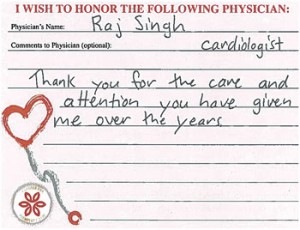 I WISH TO HONOR THE FOLLOWING PHYSICIAN:
Physician's Name: Raj Singh
Comments to Physician (optional): cardiologist
Thank you for the care and
attention you have given
me over the years.